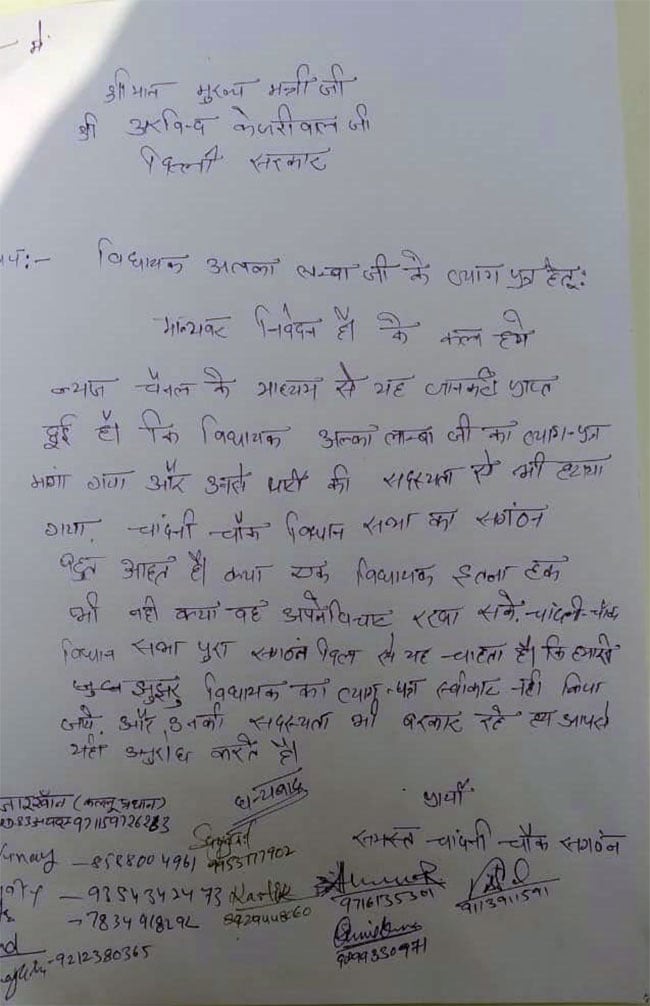 में
श्रीमान मुख्य मंत्री जी
श्री अरविन्द केजरीवाल जी
दिल्ली सरकार
:- विधायक अलका लाम्बा जी के त्याग पत्र हेतू:
मान्यवर निवेदन है। कै कल हमे
न्यूज चैनल के माध्यम से यह जानकारी प्राप्त
हुई है। कि विधायक अल्का लाम्बा जी का त्याग-पत्र
मांगा गया और उनसे पार्टी की सदस्यता से भी हटाया
गया. चांदनी चौक विधान सभा का सगंठन
बहुत आहत है। क्या एक विधायक इतना हक
भी नही क्या वह अपने विचार रख सके. चांदनी-चौक
विधान सभा पुरा सगठन दिल से यह चाहता है। कि हमारी
जुझरु विधायक का त्याग-पत्र स्वीकार नही किया
जाये. और उनकी सदस्यता भी बरकार रहे हम आपसे
यही अनुरोध करते है।
धन्यवाद
प्रार्थी
समस्त चांदनी चौक सगठन
(कल्लू प्रधान)
9711597262 83
- 8588004961
9953177902
- 9354342473
8929448660
9716135301
9113911591
- 7834918292
- 9212380365
9899330971